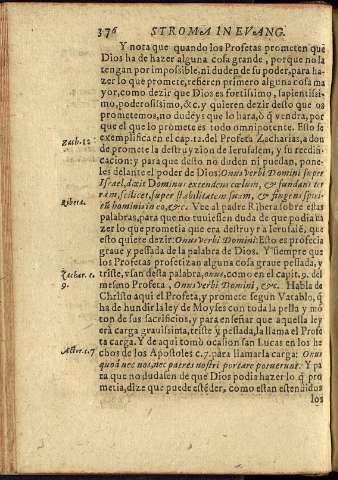 376 STROMA IN EVANG.
Y nota que quando los Profetas prometen que
Dios ha de hazer alguna cosa grande, porque no la
tengan por impossible, ni duden de su poder, para ha-
zer lo que promete, refieren primero alguna cosa ma
yor, como dezir que Dios es fortissimo, sapientissi-
mo, poderosissimo, &c. y quieren dezir desto que os
prometemos, no dudeys que lo hara, o q̃ vendra, por
que el que lo promete es todo omnipotente. Esto se
Zach. 12 exemplifica en el cap. 12. del Profeta Zacharias, a don
de promete la destruyzion de Ierusalem, y su reedifi-
cacion: y para que desto no duden ni puedan, pone-
les delante el poder de Dios: Onus verbi Domini super
Israel, dixit Dominus extendens cœlum, & fundans ter
ram, scilicet, super stabilitatem suam, & fingens spiri-
Ribera. tũ hominis in eo, &c. Vee al padre Ribera sobre estas
palabras, para que no tuuiessen duda de que podia ha
zer lo que prometia que era destruyr a Ierusalẽ, que
esto quiere dezir: Onus verbi Domini: Esto es profecia
graue y pessada de la palabra de Dios. Y siempre que
los Profetas profetizan alguna cosa graue pessada, y
Zachar. c. triste, vsan desta palabra, onus, como en el capit. 9. del
9. mesmo Profeta, Onus verbi Domini, &c. Habla de
Christo aqui el Profeta, y promete segun Vatablo, q̃
ha de hundir la ley de Moysen con toda la pella y mõ
ton de sus sacrificios, y para enseñar que aquella ley
era carga grauissima, triste y pessada, la llama el Profe
ta carga. Y de aqui tomò ocasion san Lucas en los he
Actor. c. 7 chos de los Apostoles c. 7. para llamarla carga: Onus
quod nec nos, nec patres nostri portare potuerunt. Y pa
ra que no dudasen de que Dios podia hazer lo q̃ pro
metia, dize que puede estẽder, como estan estendidos
los